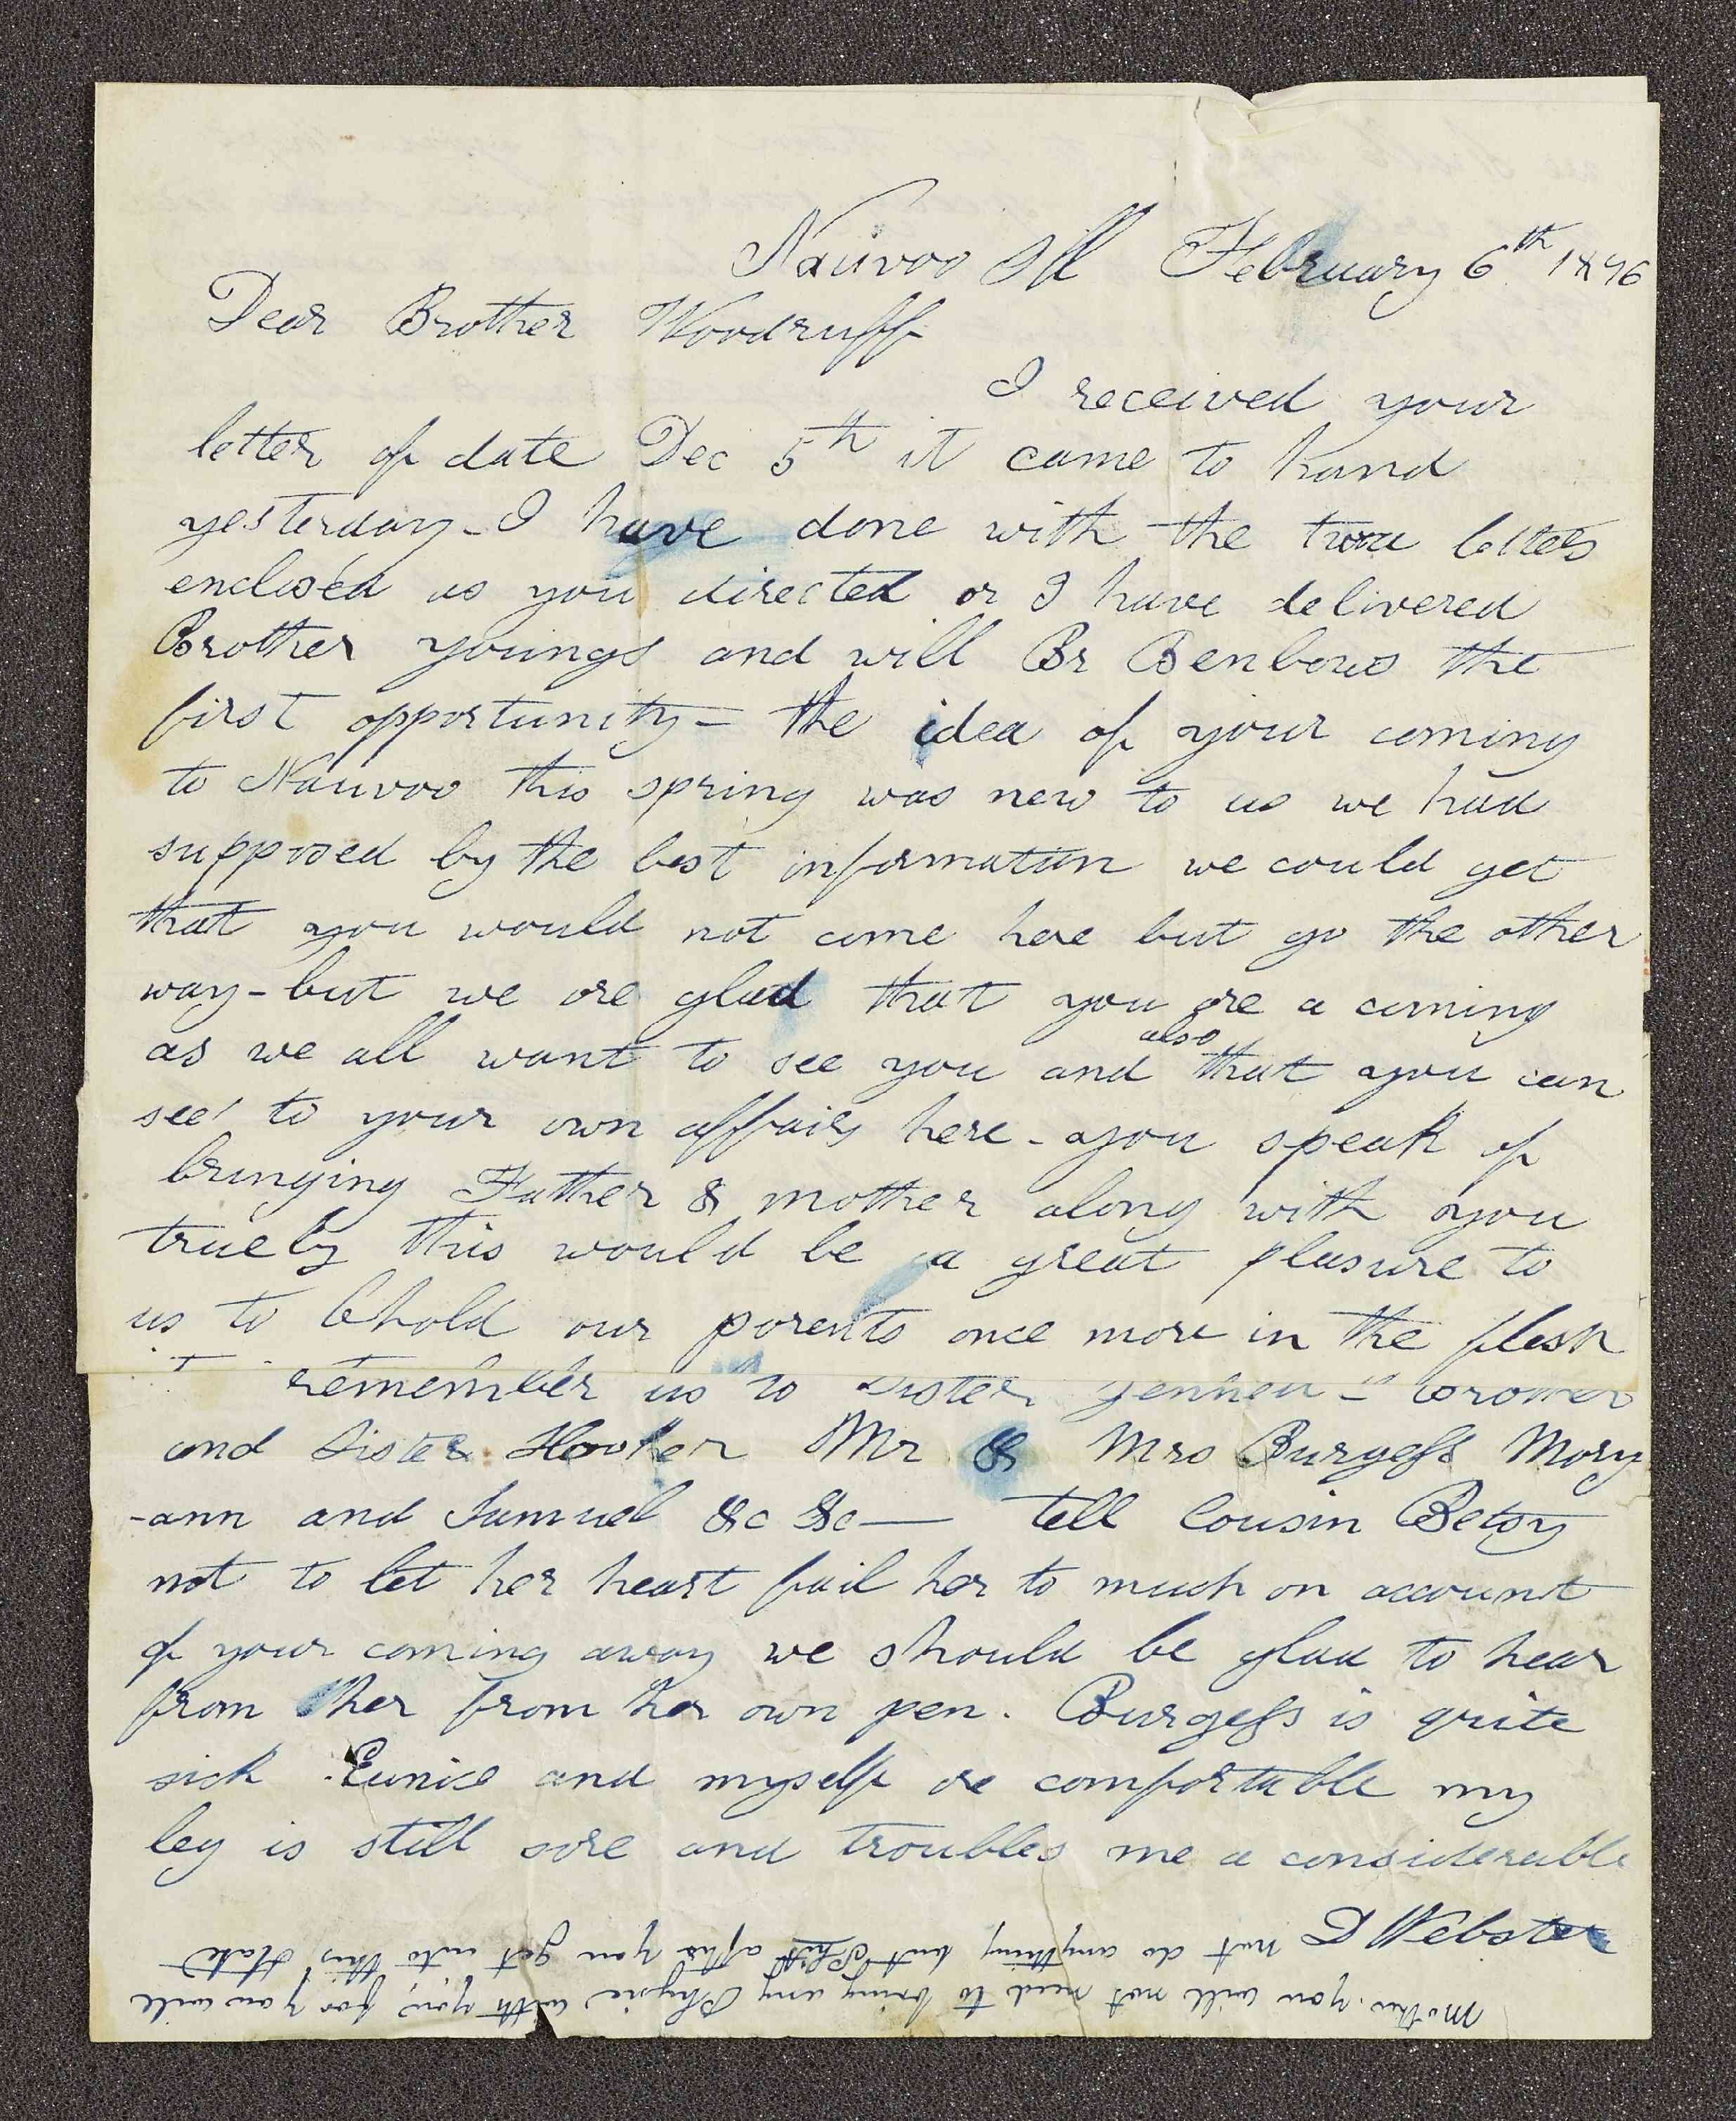 Nauvoo Ill February 6th 1846
Dear Brother Woodruff
I received your
letter of date Dec 5th it came to hand
yesterday - I have done with the two letters
enclosed as you directed or I have delivered
Brother youngs and will Br Benbows the
first opportunity - the idea of your coming
to Nauvoo this spring was new to us we had
supposed by the best information we could get
that you would not come here but go the other
way - but we are glad that you are a coming
also
as we all want to see you and that you can
see to your own affairs here - you speak of
bringing Father & mother along with you
truely this would be a great plasure to
us to behold our parents once more in the flesh
remember us to Sister
and Sister Hooker Mr & Mrs Burgess Mary
-ann and Samuel &c &c — tell Cousin Betsy
not to let her heart fail her to much on account
of your coming away we should be glad to hear
from her from her own pen. Burgess is quite
sick Eunice and myself are comfortable my
leg is still sore and troubles me a considerable
D Webster
Mother you will not need to bring any Physic with you, for you will
not do anything but Shit after you get into this State